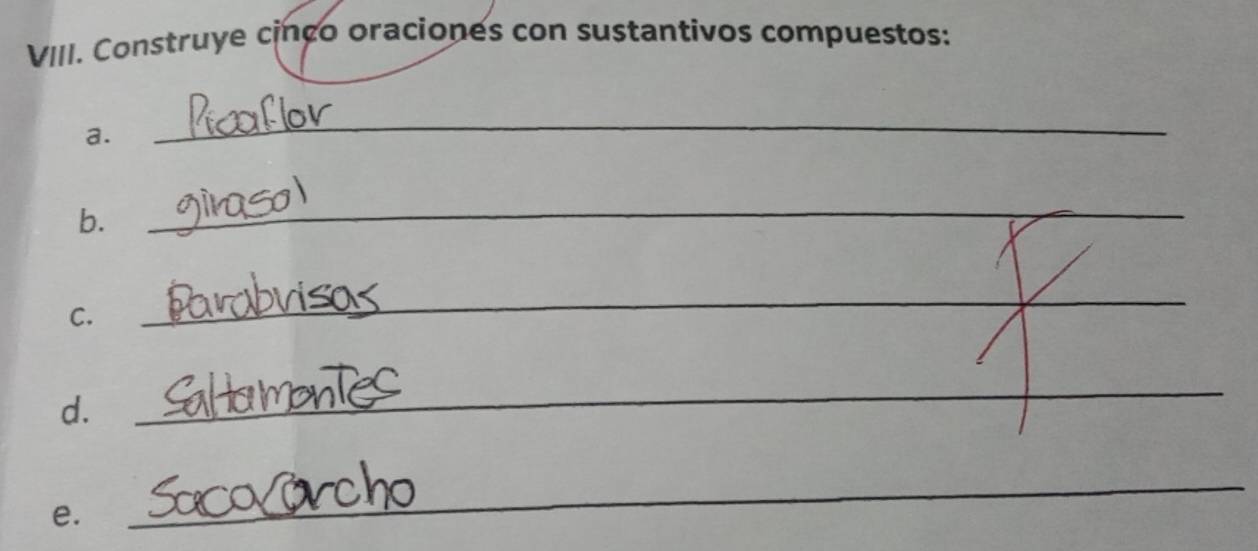 VIII. Construye cinco oraciones con sustantivos compuestos:
a. Picaflor
b. girasol
c. Parabrisas
d. SaltamonTes
e. Sacacorcho